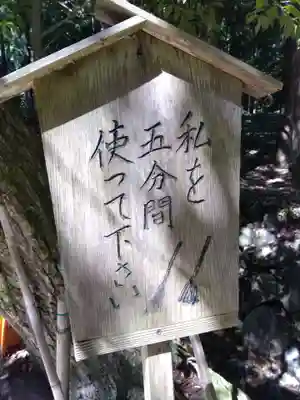 私を
五分間
使って下さい